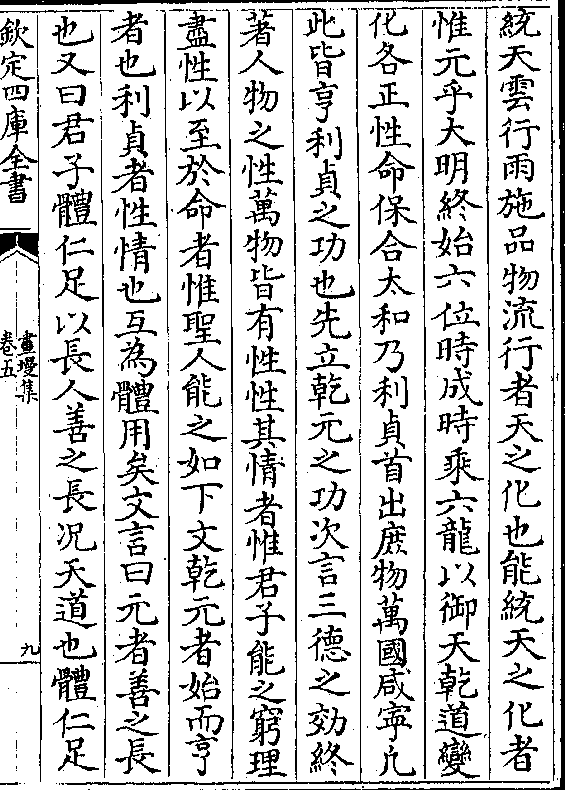 統天雲行雨施品物流行者天之化也能統天之化者
惟元乎大明終始六位時成時乘六龍以御天乾道變
化各正性命保合太和乃利貞首出庶物萬國咸寧凡
此皆亨利貞之功也先立乾元之功次言三德之効終
著人物之性萬物皆有性性其情者惟君子能之窮理
盡性以至於命者惟聖人能之如下文乾元者始而亨
者也利貞者性情也互為體用矣文言曰元者善之長
也又曰君子體仁足以長人善之長況天道也體仁足
欽定四庫全書
畫墁集
卷五
九